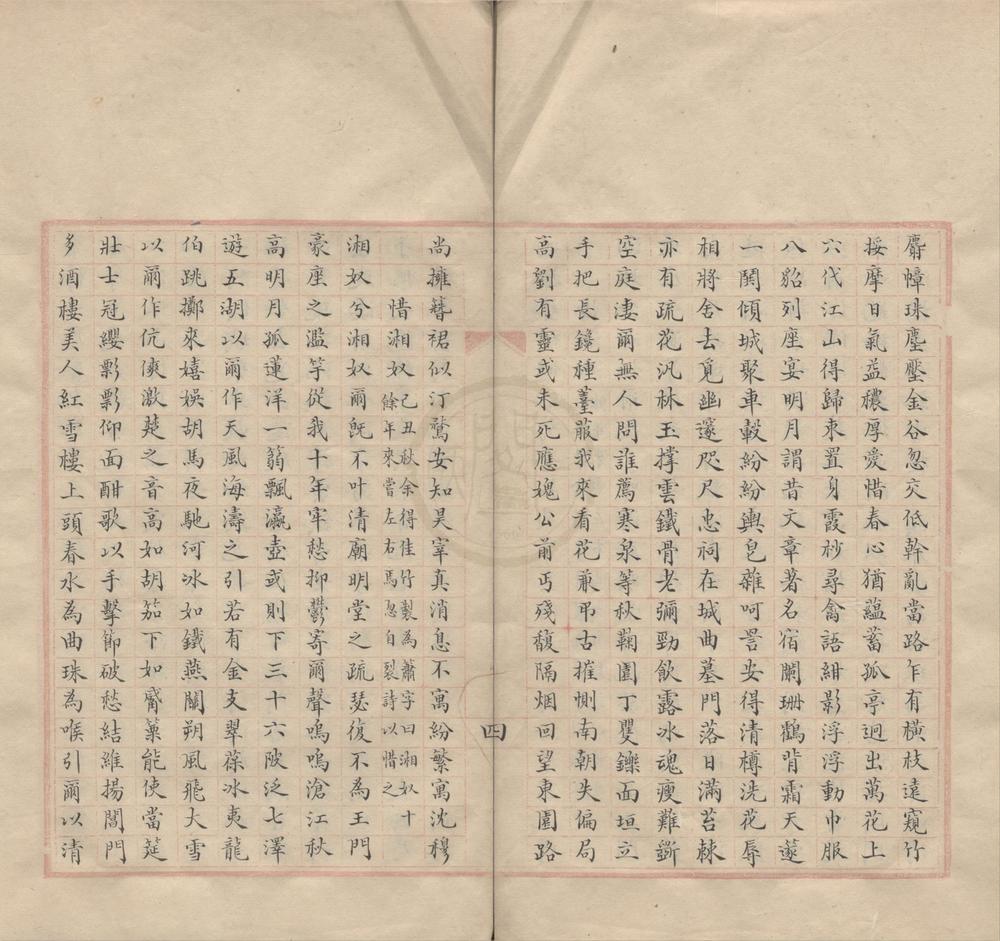 麝幢珠塵壓金谷忽交低幹亂當路乍有橫枝遠窺竹
挼摩日氣益穠厚愛惜春心猶蘊蓄孤亭迥出萬花上
六代江山得歸束置身霞杪尋禽語紺影浮浮動巾服
八貂列座宴明月謂昔文章著名宿闌珊鶴背霜天邃
一鬨傾城聚車轂紛紛輿皂雜呵詈安得清樽洗花辱
相將舍去覓幽邃咫尺忠祠在城曲墓門落日滿苔棘
亦有疏花汎林玉撐雲鐵骨老彌勁飲露冰魂瘦難斸
空庭淒爾無人問誰薦寒泉等秋鞠園丁矍鑠面垣立
手把長鑱種臺菔我來看花兼弔古摧惻南朝失偏局
高劉有靈或未死應媿公前丐殘馥隔烟回望東園路
尚擁簪裾似汀鶩安知昊宰真消息不寓紛繁寓沈穆
惜湘奴己丑秋余得佳竹製為簫字曰湘奴十
餘年來嘗左右焉忽自裂詩以惜之
湘奴兮湘奴爾旣不叶清廟明堂之疏瑟復不為王門
豪座之濫竽從我十年牢愁抑鬱寄爾聲嗚嗚滄江秋
高明月孤蓮洋一蒻飄瀛壺或則下三十六陂泛七澤
遊五湖以爾作天風海濤之引若有金支翠葆冰夷龍
伯跳擲來嬉娛胡馬夜馳河冰如鐵燕關朔風飛大雪
以爾作伉俠激楚之音高如胡笳下如觱篥能使當筵
壯士冠纓影影仰面酣歌以手擊節破愁結維揚閶門
多酒樓美人紅雪樓上頭春水為曲珠為喉引爾以清
四